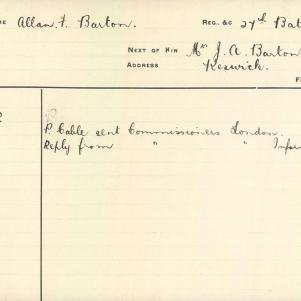 Allan. F. Barton. Reg. &c 27th Bat
Next of Kin Mrs J. A. Barton
Address Keswick.
P. Cable sent Commissioners London.
Reply from " "